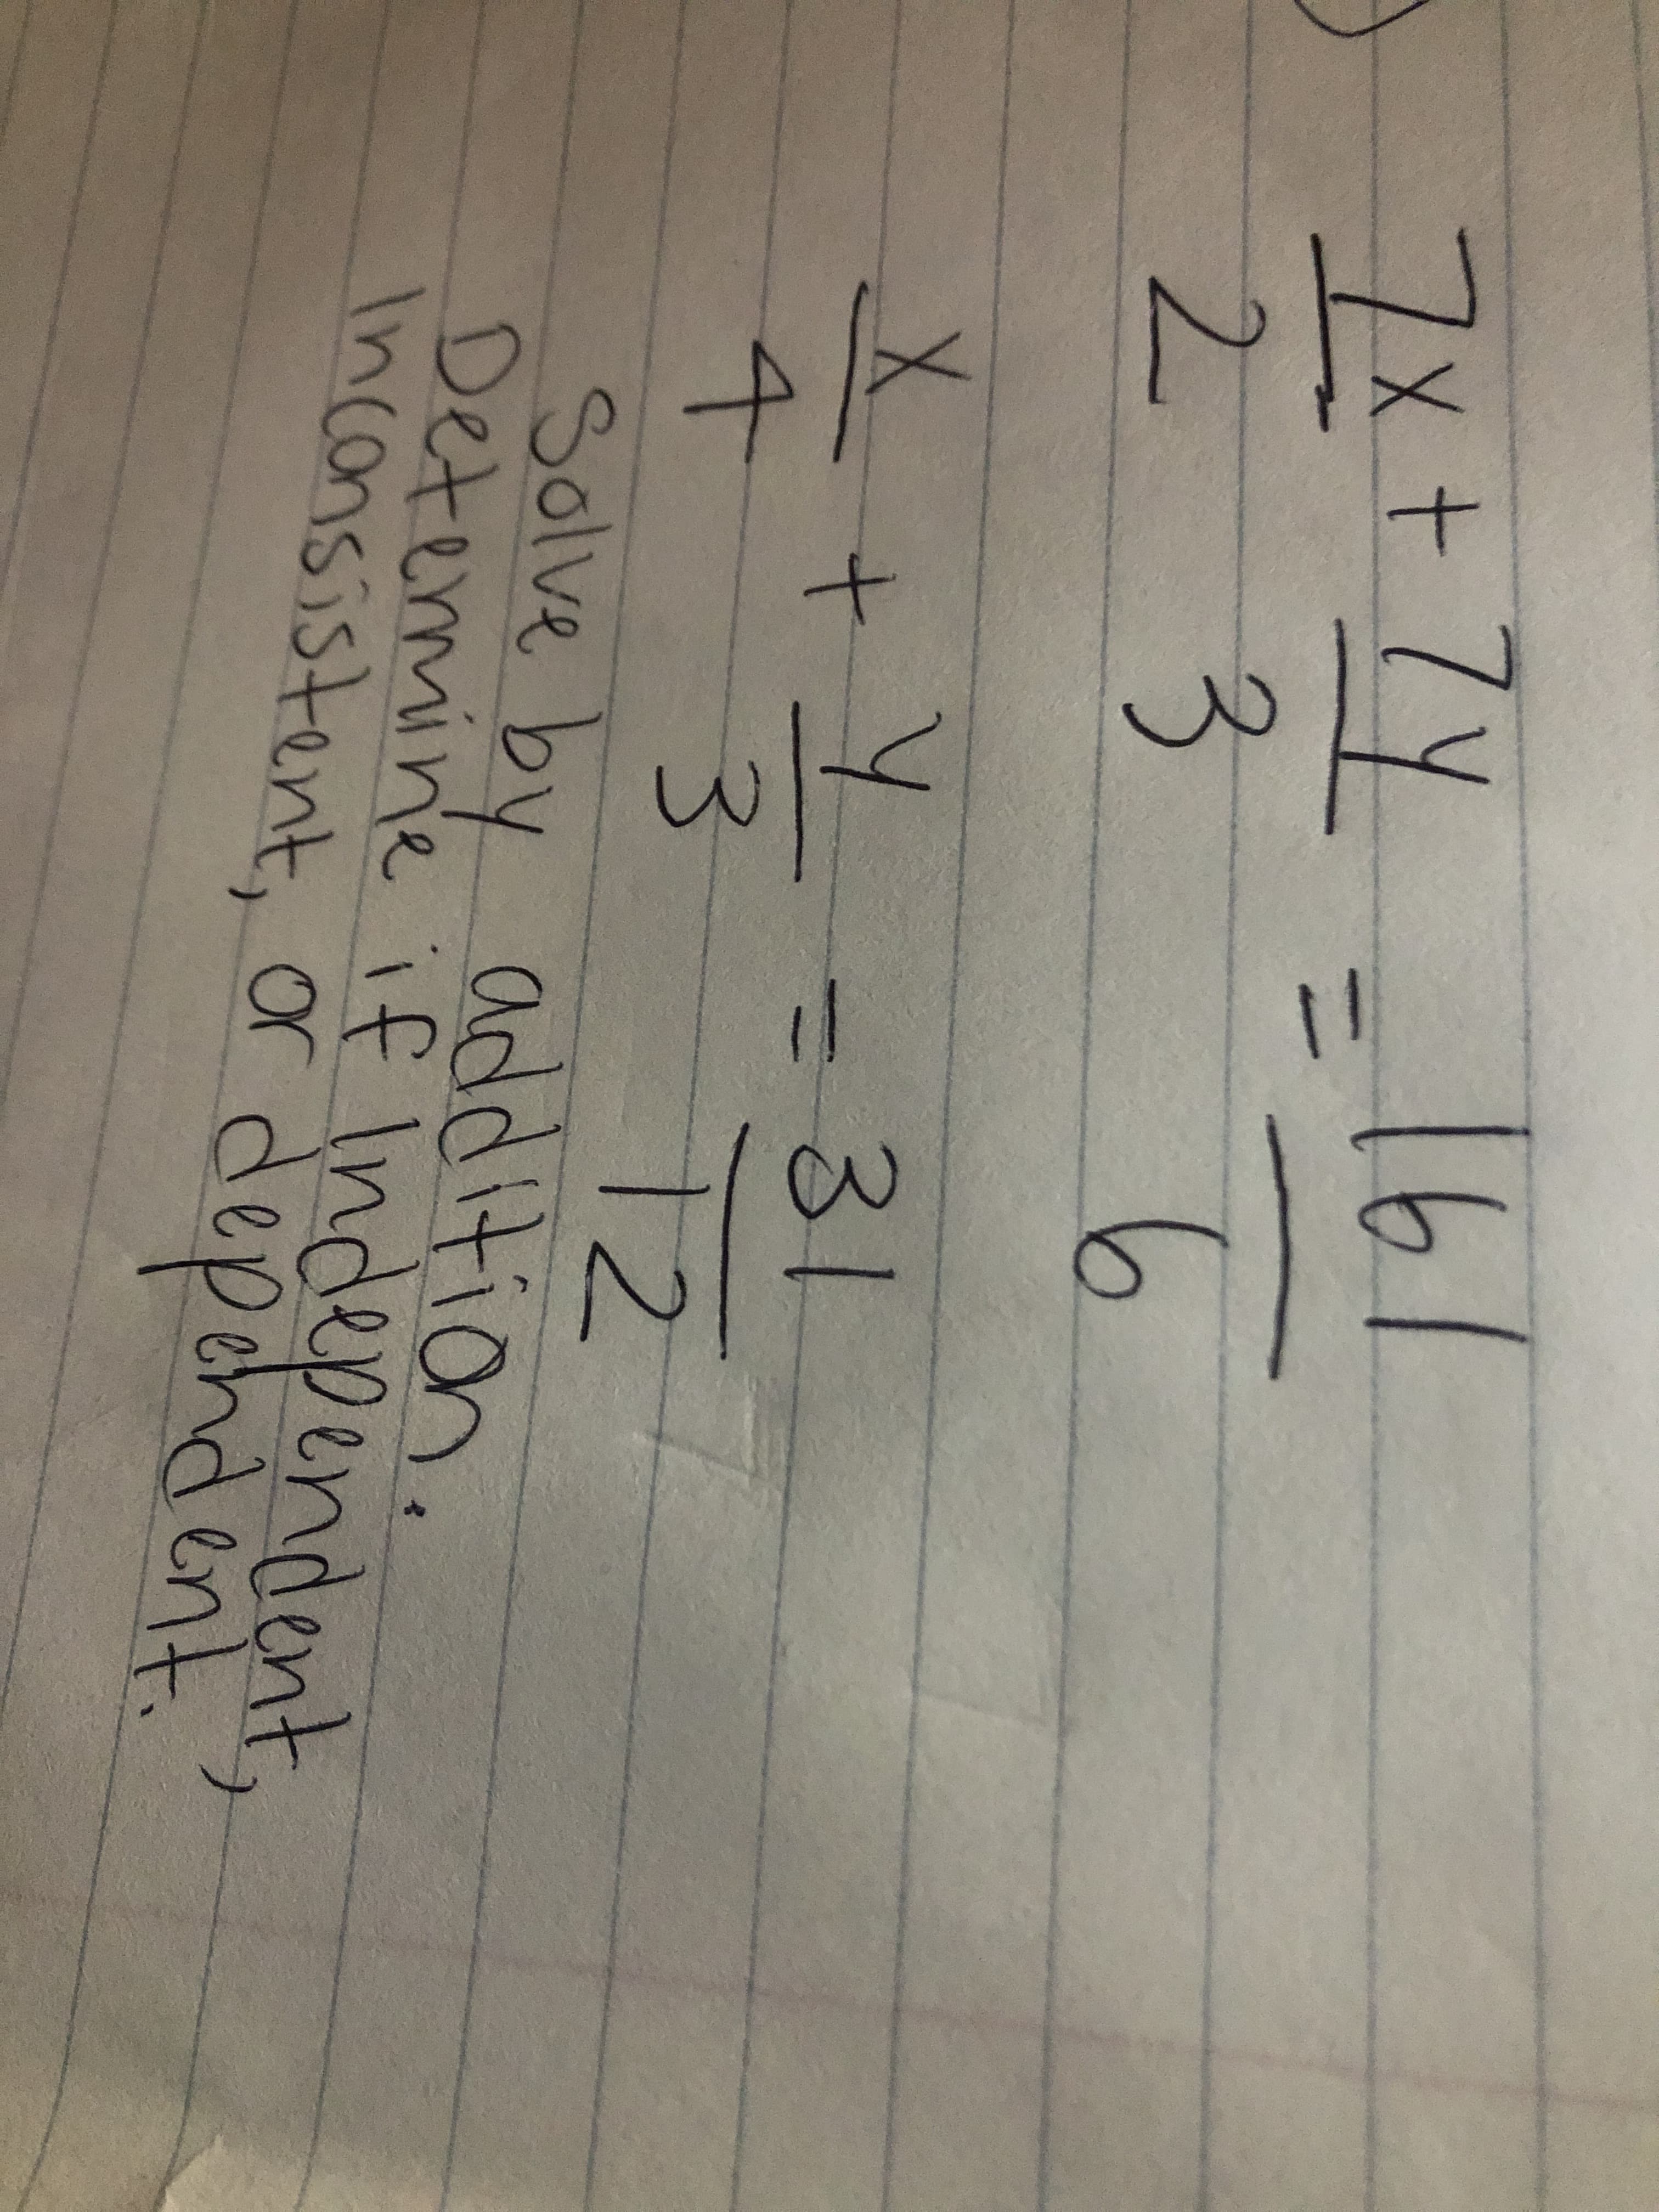 7x/2 + 7y/3 = 161/6
x/4 + y/3 = 31/12
Solve by addition.
Determine if Independent,
inconsistent, or dependent.